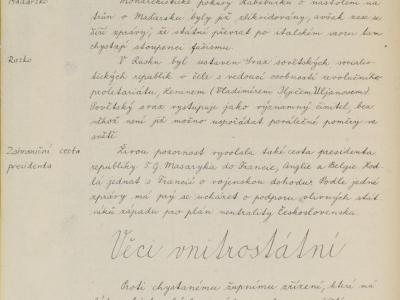 Maďarsko
Monarchistické pokusy Habsburků o nastolení na
trůn v Maďarsku byly již zlikvidovány, avšak zase se
šíří zprávy, že státní převrat po italském vzoru tam
chystají stoupenci fašismu.
Rusko
V Rusku byl ustaven Svaz sovětských sociali-
stických republik v čele s vedoucí osobností revolučního
proletariátu, Leninem (Vladimírem Iljičem Uljanovem).
Sovětský svaz vystupuje jako významný činitel, bez
něhož není již možno uspořádat poválečné poměry ve
světě.
Zahraniční cesta
presidenta
Živou pozornost vyvolala také cesta presidenta
republiky T. G. Masaryka do Francie, Anglie a Belgie. Hod-
lá jednat s Francií o vojenskou dohodu. Podle jedné
zprávy má prý se ucházet o podporu vlivných stát-
níků západu pro plán neutrality Československa.
Věci vnitrostátní
Proti chystanému župnímu zřízení, které má